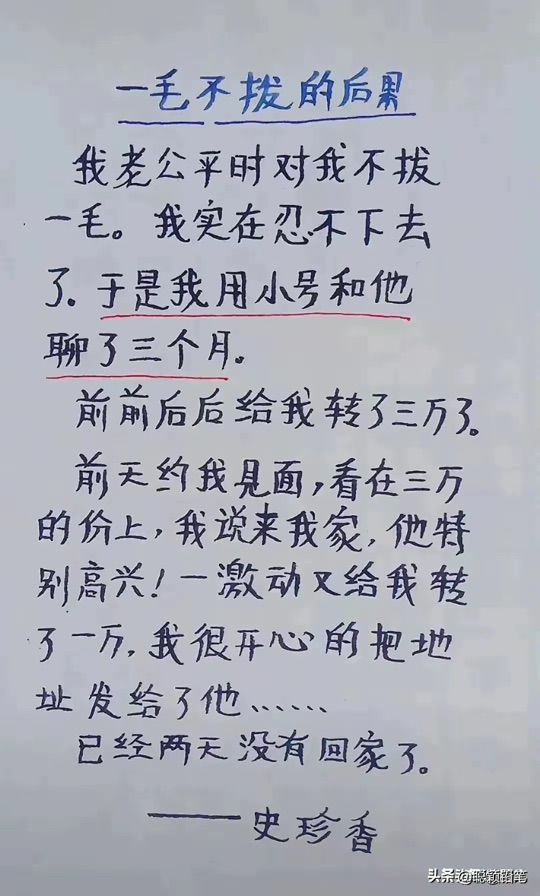 一毛不拔的后果
我老公平时对我不拔
一毛。我实在忍不下去
了.于是我用小号和他
聊了三个月。
前前后后给我转了三万了。
前天约我见面,看在三万
的份上,我说来我家,他特
别高兴!一激动又给我转
了一万,我很开心的把地
址发给了他……
已经两天没有回家了。
——史珍香